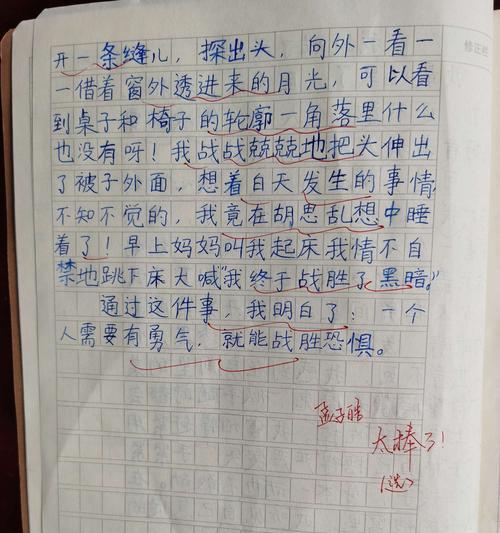 开一条缝儿，探出头，向外一看一
一借着窗外透进来的月光，可以看
到桌子和椅子的轮廓一角落里什么
也没有呀！我战战兢兢地把头伸出
了被子外面，想着白天发生的事情
不知不觉的，我竟在胡思乱想中睡
着了！早上妈妈叫我起床我情不自
禁地跳下床大喊“我终于战胜了黑暗。”
通过这件事，我明白了：一个
人需要有勇气，就能战胜恐惧。
孟子皓
太棒了！
（选）
修正栏